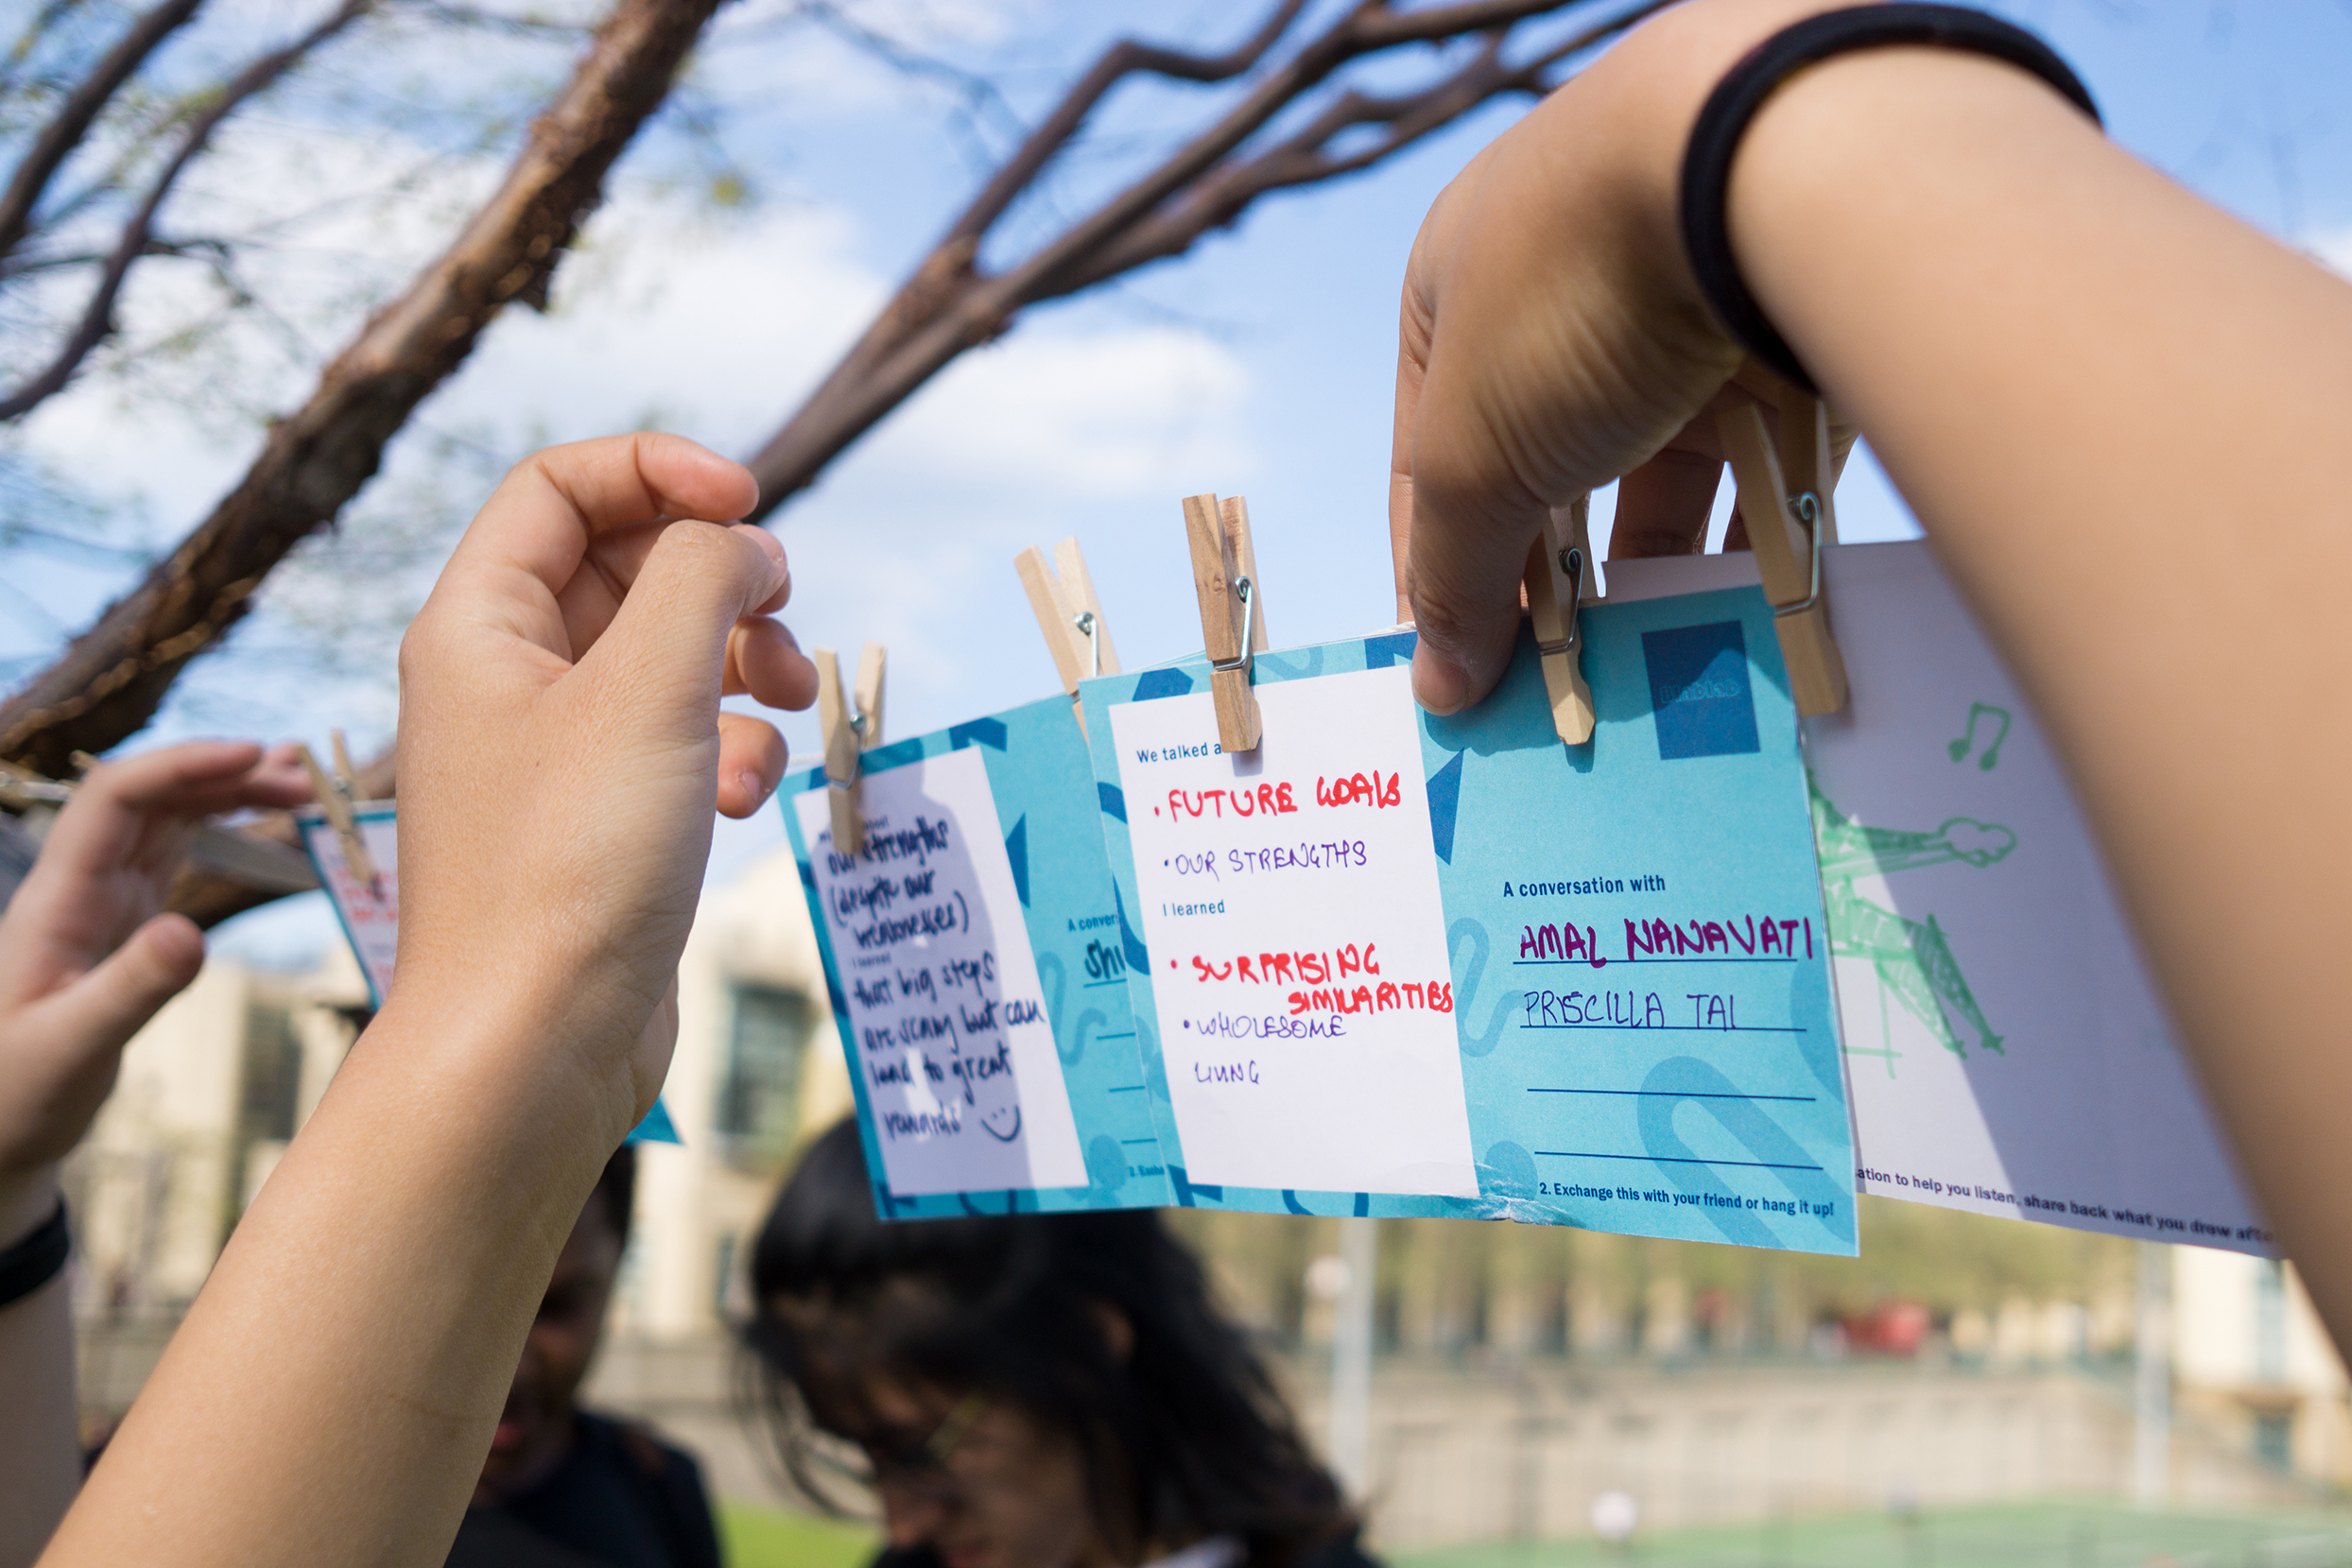 our strengths
(despite our
weaknesses)
I learned
that big steps
are scary but can
lead to great
rewards
A conver
Shi
We talked a
• FUTURE GOALS
• OUR STRENGTHS
I learned
• SURPRISING
SIMILARITIES
• WHOLESOME
LIVING
Blablab
A conversation with
AMAL NANAVATI
PRISCILLA TAI
2. Exchange this with your friend or hang it up!
ation to help you listen, share back what you drew afte